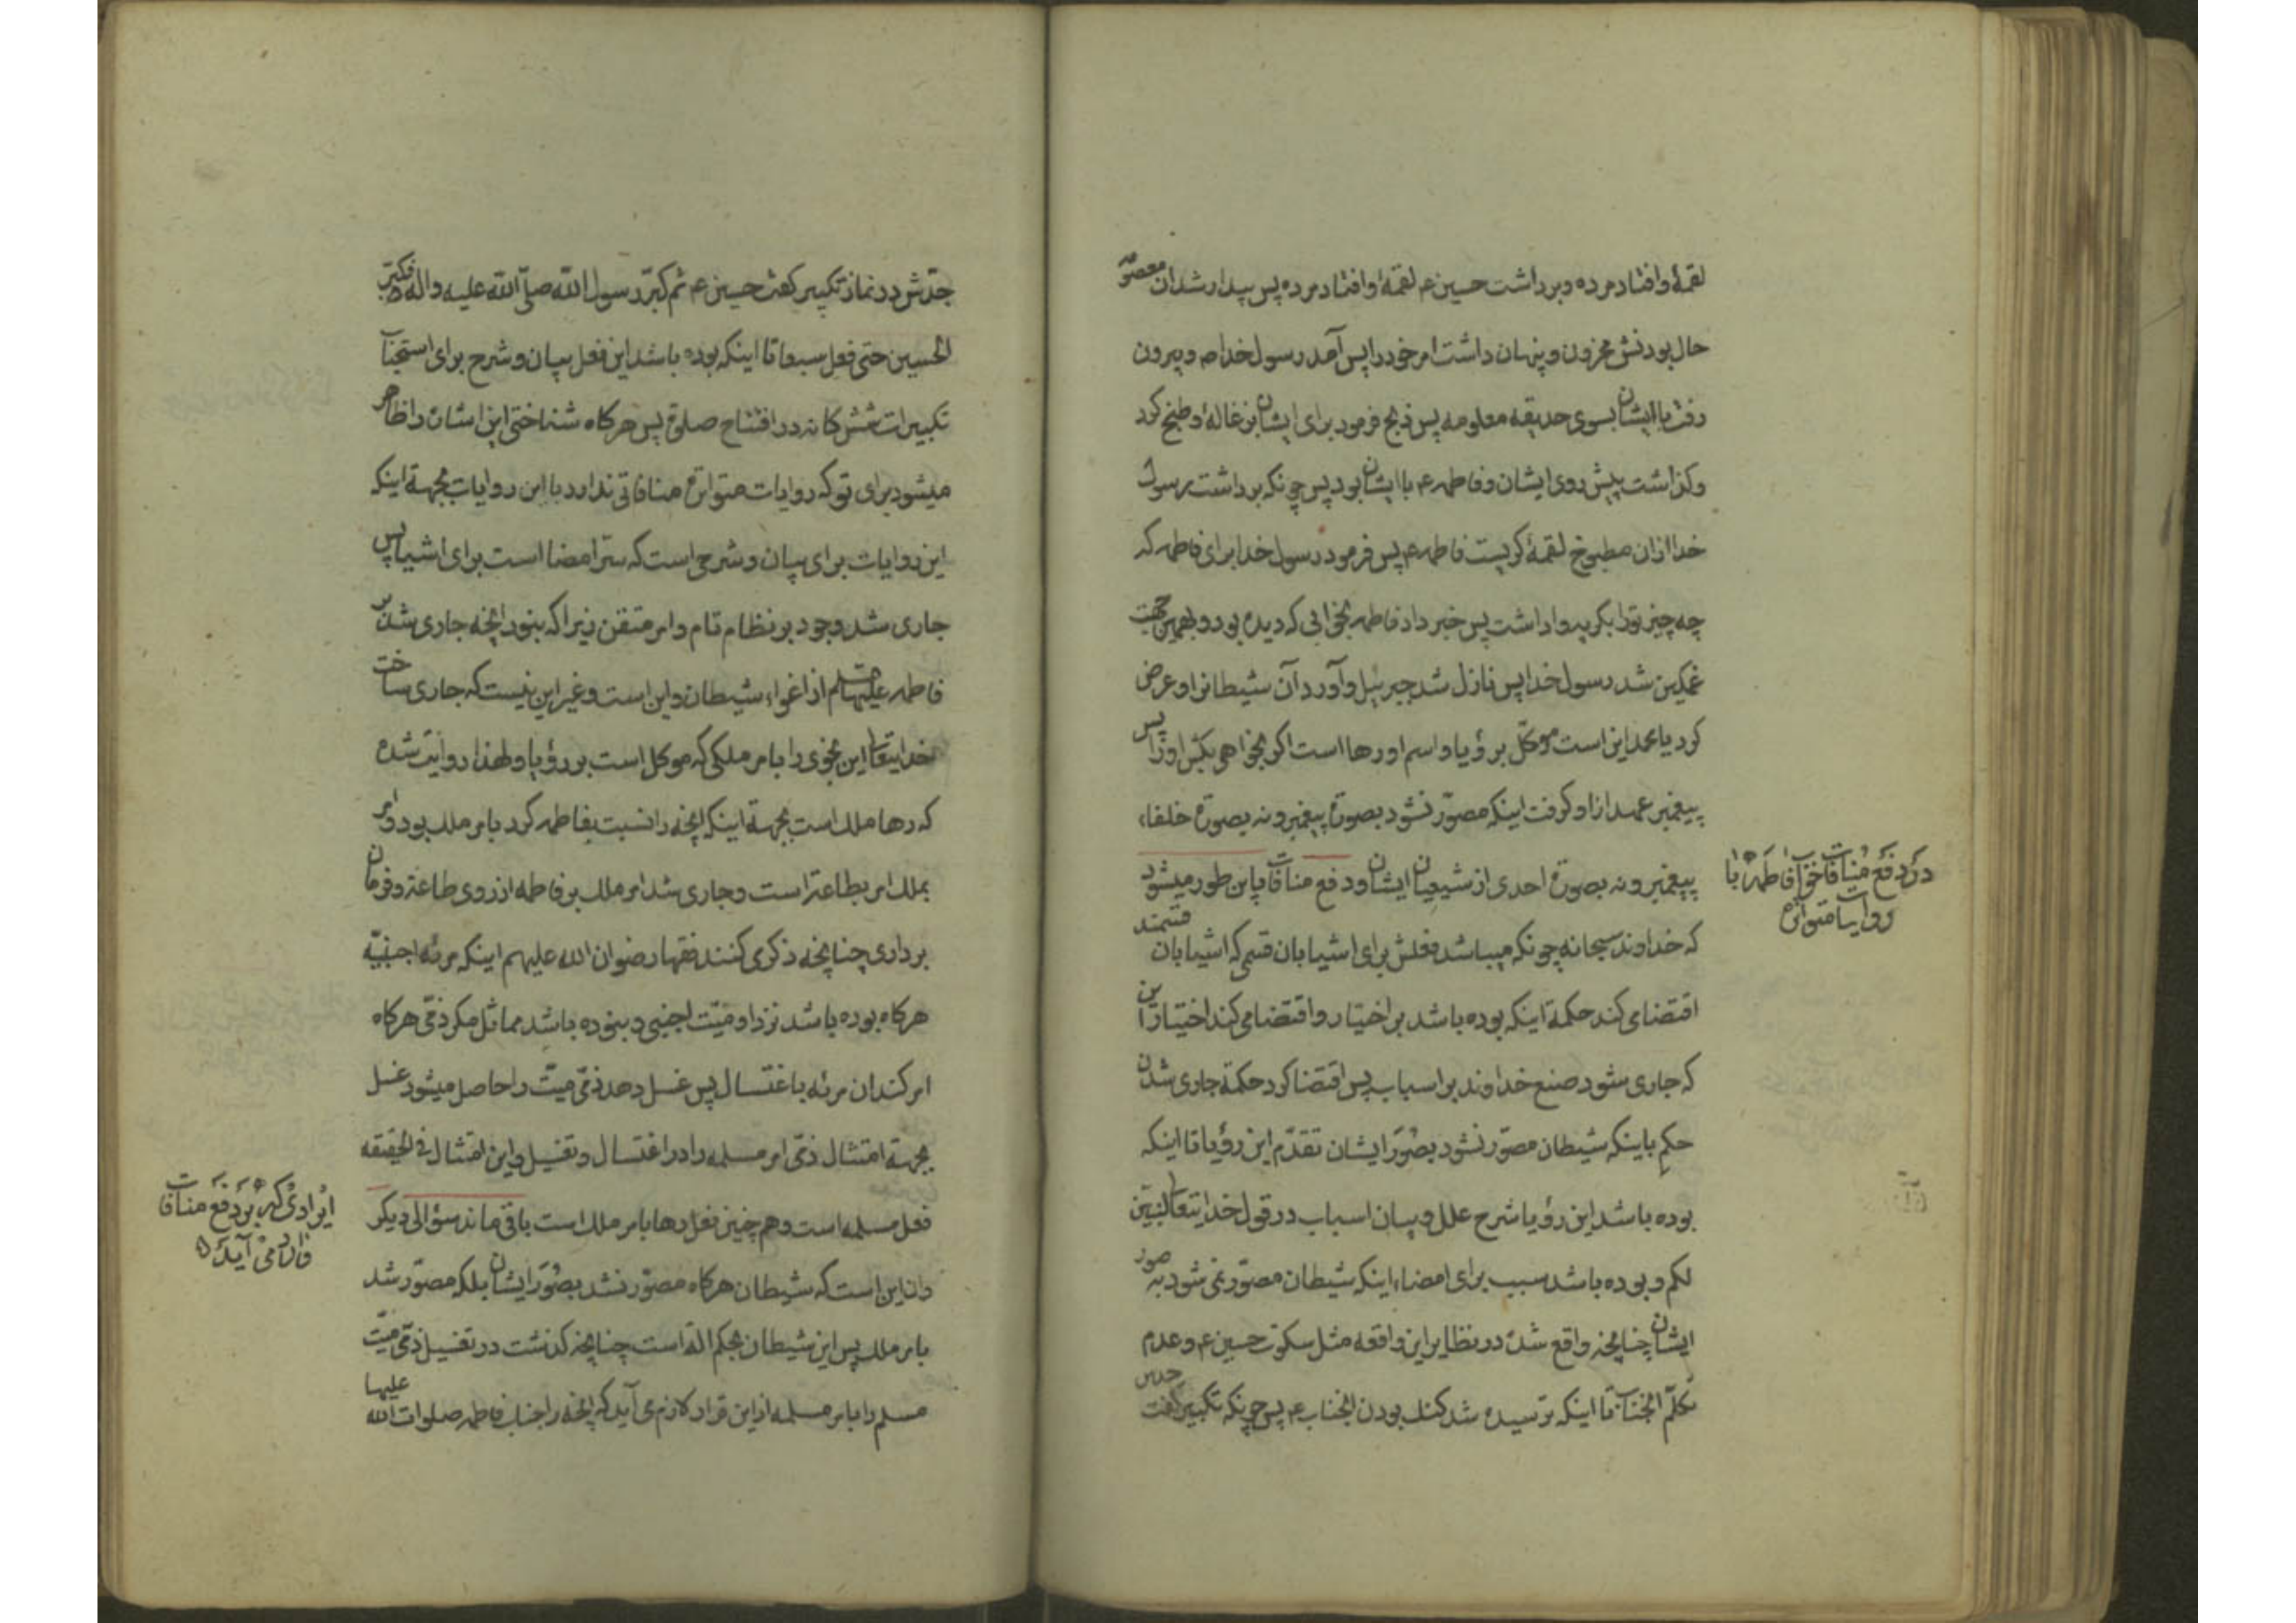 لقمهٔ وافتاد مرده وبرداشت حسین ع لقمهٔ وافتاد مرده پس بیدار شد ان معصوم
حال بودنش محزون وپنهان داشت امر خود را پس آمد رسول خدا ص وبیرون
رفت با ایشان بسوی حدیقه معلومه پس ذبح فرمود برای ایشان بزغاله و طبخ کرد
وکذاشت پیش روی ایشان وفاطمه ع با ایشان بود پس چونکه برداشت رسول
خدا ازان مطبوخ لقمهٔ کریست فاطمه ع پس فرمود رسول خدا برای فاطمه که
چه چیز تورا بکریه واداشت پس خبر داد فاطمه بخوابی که دیده بود وبهمین جهت
غمکین شد رسول خدا پس نازل شد جبرئیل وآورد آن شیطانرا وعرض
کرد یا محمد این است موکّل بر ؤیا واسم اورها است اکر بخواهی بکش اورا پس
پیغمبر عهد ازاو کرفت اینکه مصوّر نشود بصورة پیغمبر ونه بصورة خلفاء
پیغمبر ونه بصورة احدی از شیعیان ایشان ودفع منافات باین طور میشود
که خداوند سبحانه چونکه میباشد فعلش برای اشیا بان قسمی که اشیا بان قسمتند
اقتضا می کند حکمة اینکه بوده باشد بر اختیار واقتضا می کند اختیار این
که جاری شود صنع خداوند بر اسباب پس اقتضا کرد حکمة جاری شدن
حکم باینکه شیطان مصوّر نشود بصُوَر ایشان تقدّم این رؤیا تا اینکه
بوده باشد این رؤیا شرح علل وبیان اسباب در قول خدایتعالی لنبیّن
لکم وبوده باشد سبب برای امضاء اینکه شیطان مصوّر نمی شود به صور
ایشان چنانچه واقع شده در نظایر این واقعه مثل سکوت حسین ع وعدم
تکلّم انجناب تا اینکه ترسیده شد کنک بودن انجناب ع پس چونکه تکبیر کفت جدش
در دفع منافات خواب فاطمه ع با
روایات متواتره
جدّش در نماز تکبیر کفت حسین ع ثم کبّر رسول الله صلّی الله علیه واله فکبّر
الحسین حتی فعل سبعا تا اینکه بوده باشد این فعل بیان وشرح برای استحباب
تکبیرات شش کانه در افتتاح صلوة پس هرکاه شناختی این اشان را ظاهر
میشود برای تو که روایات متواتره منافاتی ندارد با این روایات بجهة اینکه
این روایات برای بیان وشرحی است که سرّ امضا است برای اشیا پس
جاری شد وجود بر نظام تام وامر متقن زیرا که نبود انچه جاری شد بر
فاطمه علیها سلم از اغواء شیطان واین است وغیر این نیست که جاری ساخت
خدایتعالی این نجوی را بامر ملکی که موکل است بر رؤیا ولهذا روایت شده
که رها ملک است بجهة اینکه انچه را نسبت بفاطمه کرد بامر ملک بود وامر
بملک امر بطاعة است وجاری شد امر ملک بر فاطمه از روی طاعة وفرمان
برداری چنانچه ذکر می کنند فقها رضوان الله علیهم اینکه مرئه اجنبیّه
هرکاه بوده باشد نزد او میّت اجنبی ونبوده باشد مماثل مکر ذمّی هرکاه
امر کند ان مرئه باغتسال پس غسل دهد ذمّی میّت را حاصل میشود غسل
بجهة امتثال ذمّی امر مسلمه را در اغتسال وتغسیل واین امتثال فی الحقیقه
فعل مسلمه است وهم چنین فعل رها بامر ملک است باقی ماند سؤالی دیکر
وان این است که شیطان هرکاه مصوّر نشد بصُوَر ایشان بلکه مصوّر شد
بامر ملک پس این شیطان بحکم الة است چنانچه کذشت در تغسیل ذمّی میّت
مسلم را بامر مسلمه از این قرار لازم می آید که انچه را جناب فاطمه صلوات الله علیها
ایرادی که بر دفع منافات
وارد می آید